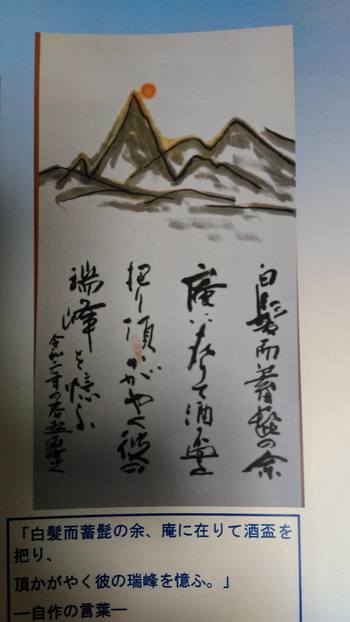 白髪而蓄髭の余
庵に在りて酒盃を
把り頂かがやく彼の
瑞峰を憶ふ
「白髪而蓄髭の余、庵に在りて酒盃を
把り、
頂かがやく彼の瑞峰を憶ふ。」
―自作の言葉―